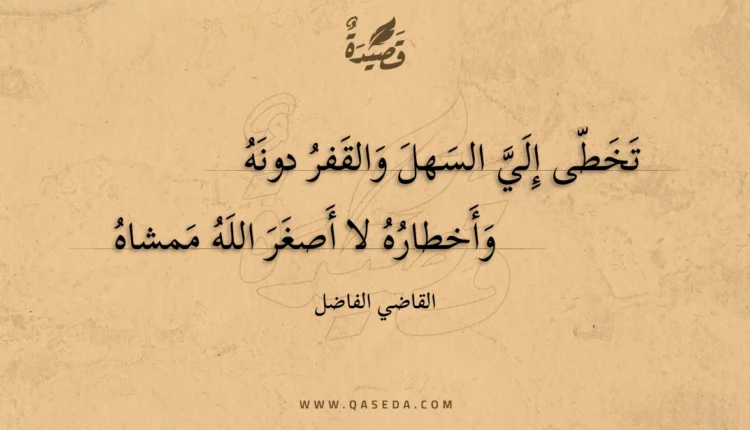 قَصِيدَةٌ
تَخَطّى إِلَيَّ السَهلَ وَالقَفرُ دونَهُ
وَأَخطارُهُ لا أَصغَرَ اللَهُ مَمشاهُ
القاضي الفاضل
WWW.QASEDA.COM